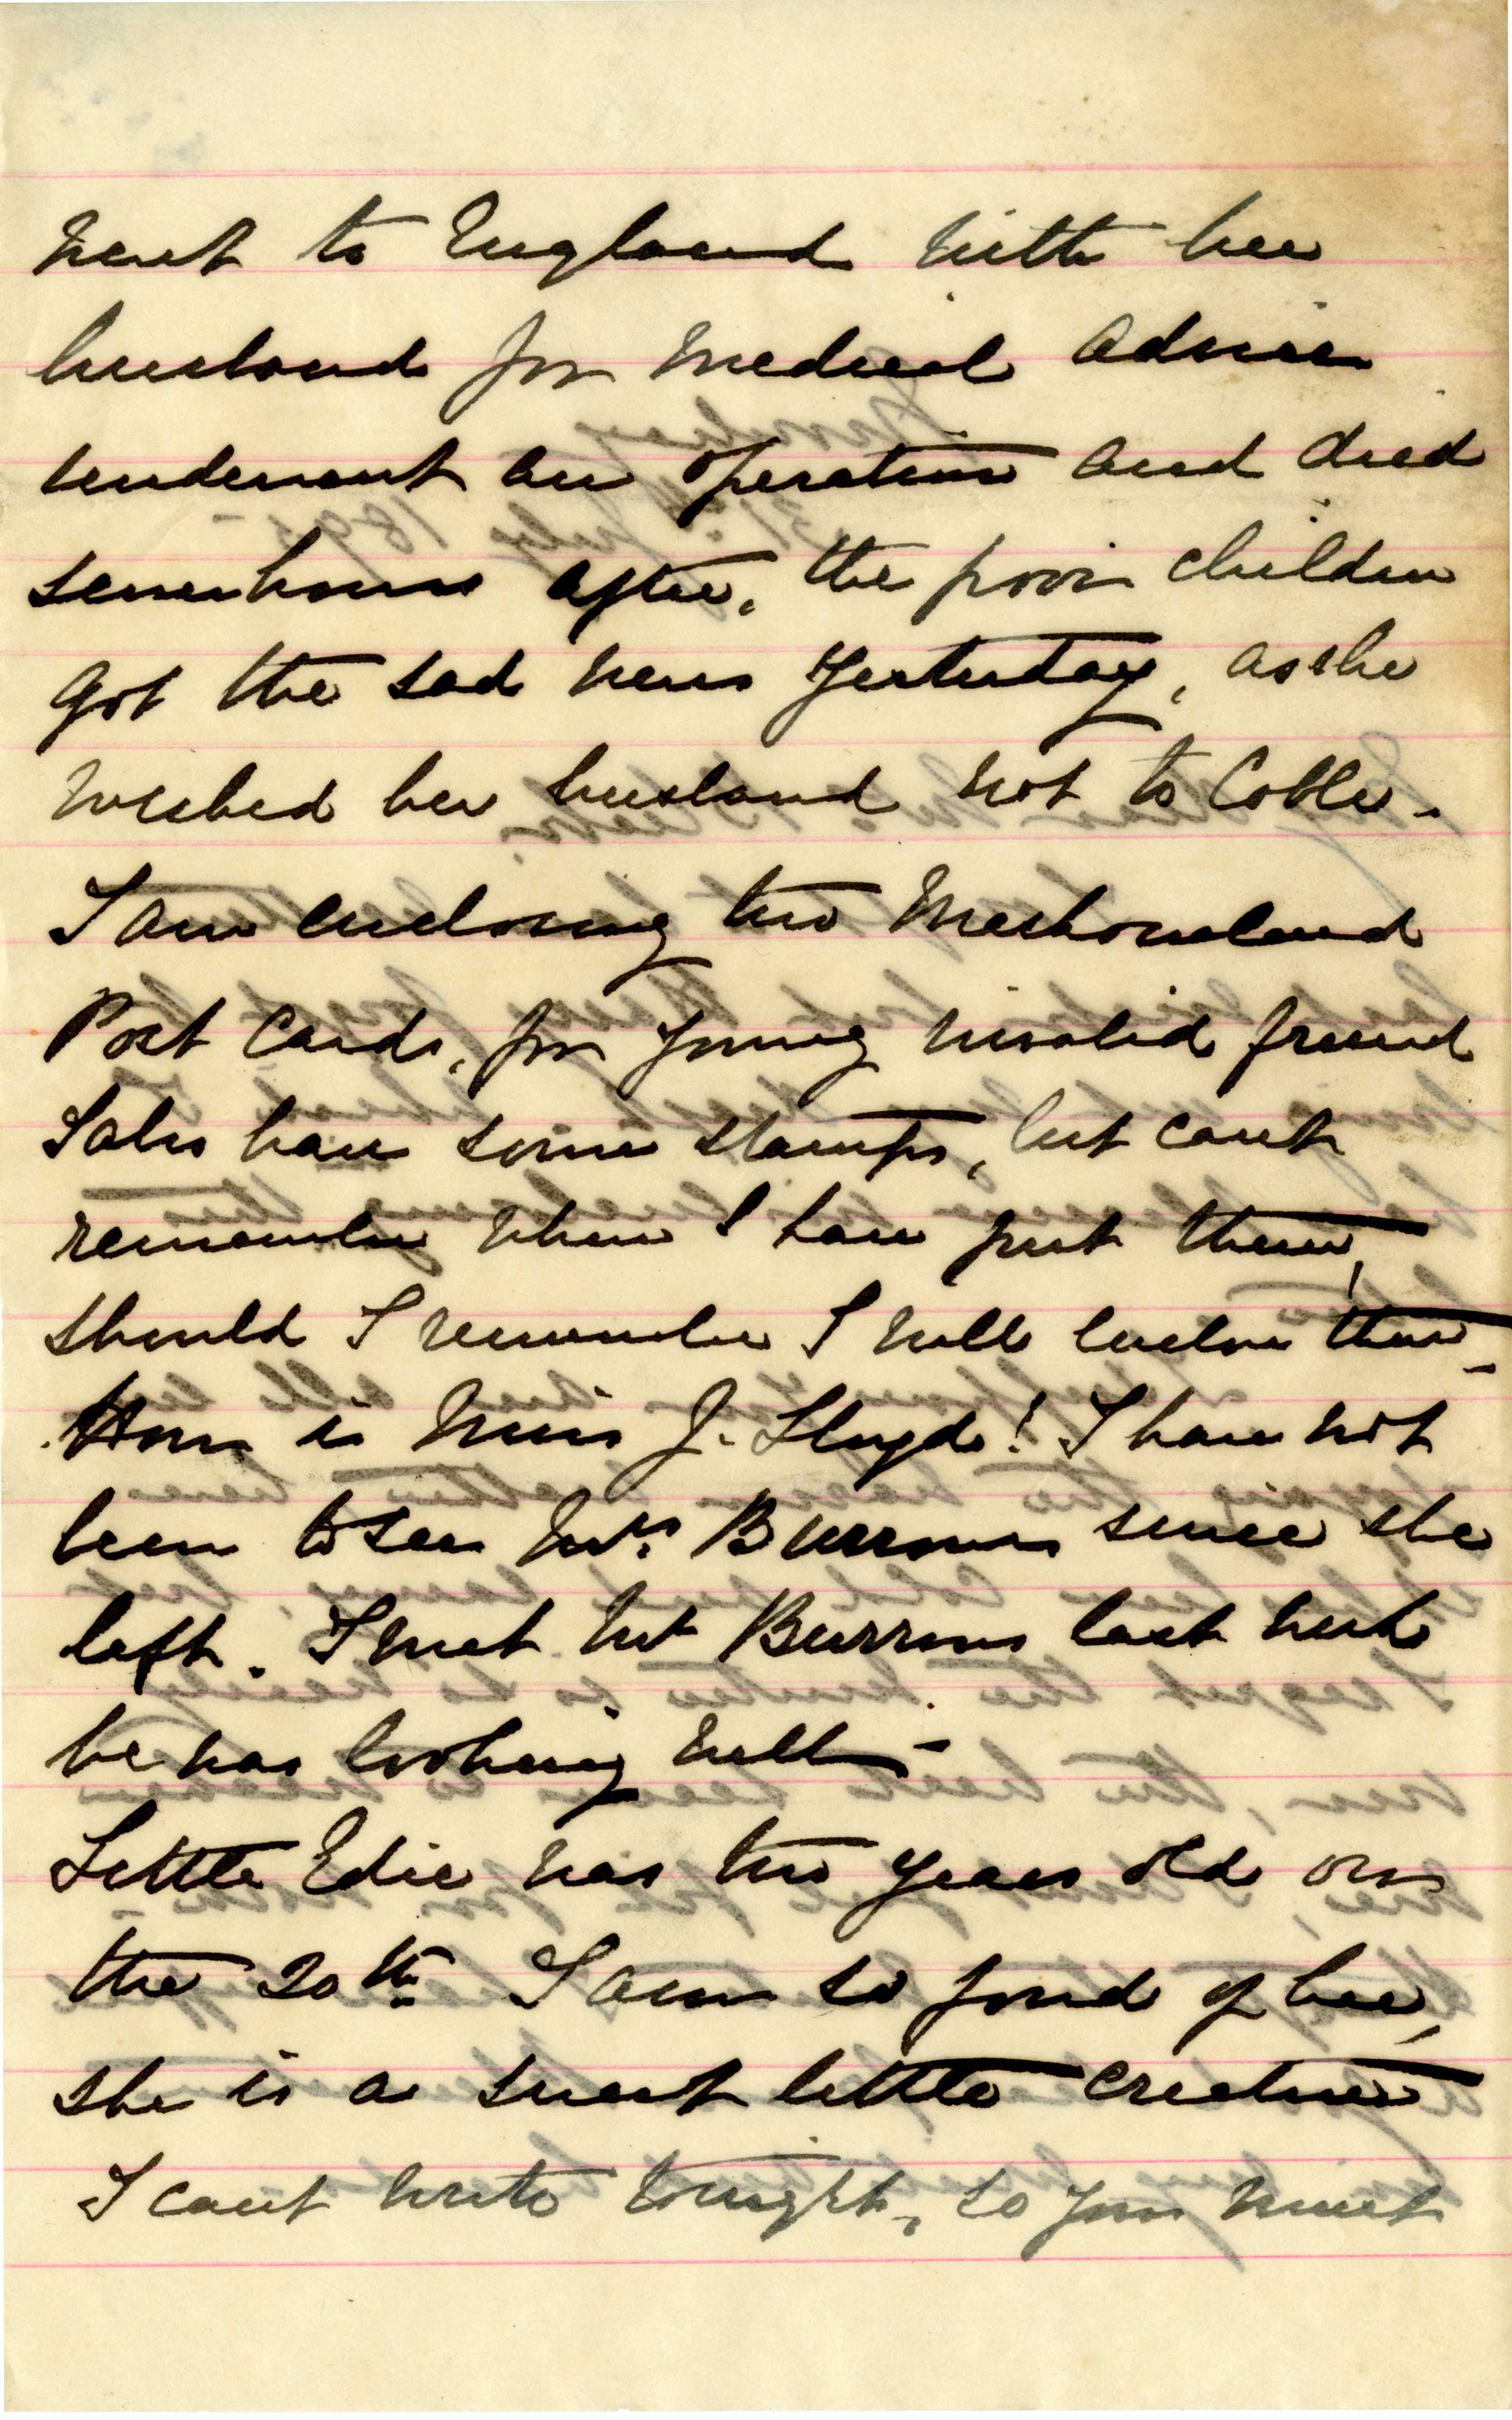 went to England with her
husband for medical advice
underwent an operation and died
seven hours after, the poor children
got the sad news yesterday, as she
wished her husband not to Cable.
I am enclosing two Mashonaland
Post Cards, for young invalid friend
I also have some stamps, but cant
remember where I have put them,
should I remember I will enclose them
How is Miss J. Lloyd! I have not
been to see Mrs. Burrows since she
left. I met Mr Burrows last week
he was looking well -
Little Edie was two years old on
the 20th. I am so fond of her,
she is a sweet little creature
I cant write tonight, so you must